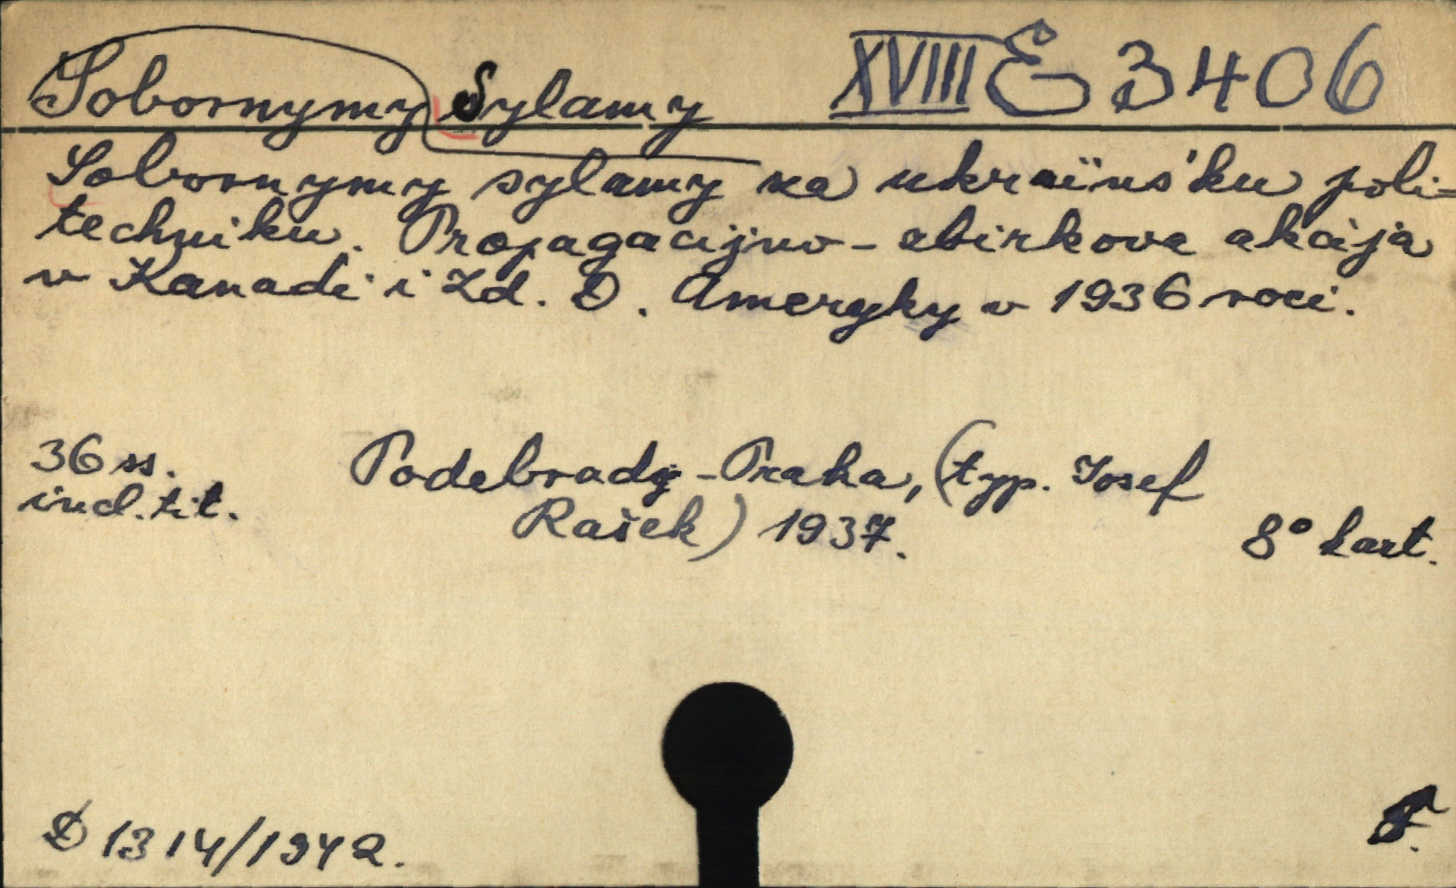 Sobornymy Sylamy XVIII E 3406
Sobornymy sylamy na ukraïns'ku poli-
techniku. Propagacijno-zbirkova akcija
v Kanadi i Zd. D. Ameryky v 1936 roci.
36 ss. Podebrady-Praha, (typ. Josef
ind. tit. Rašek) 1937.
8° kart.
D 1314/1942.